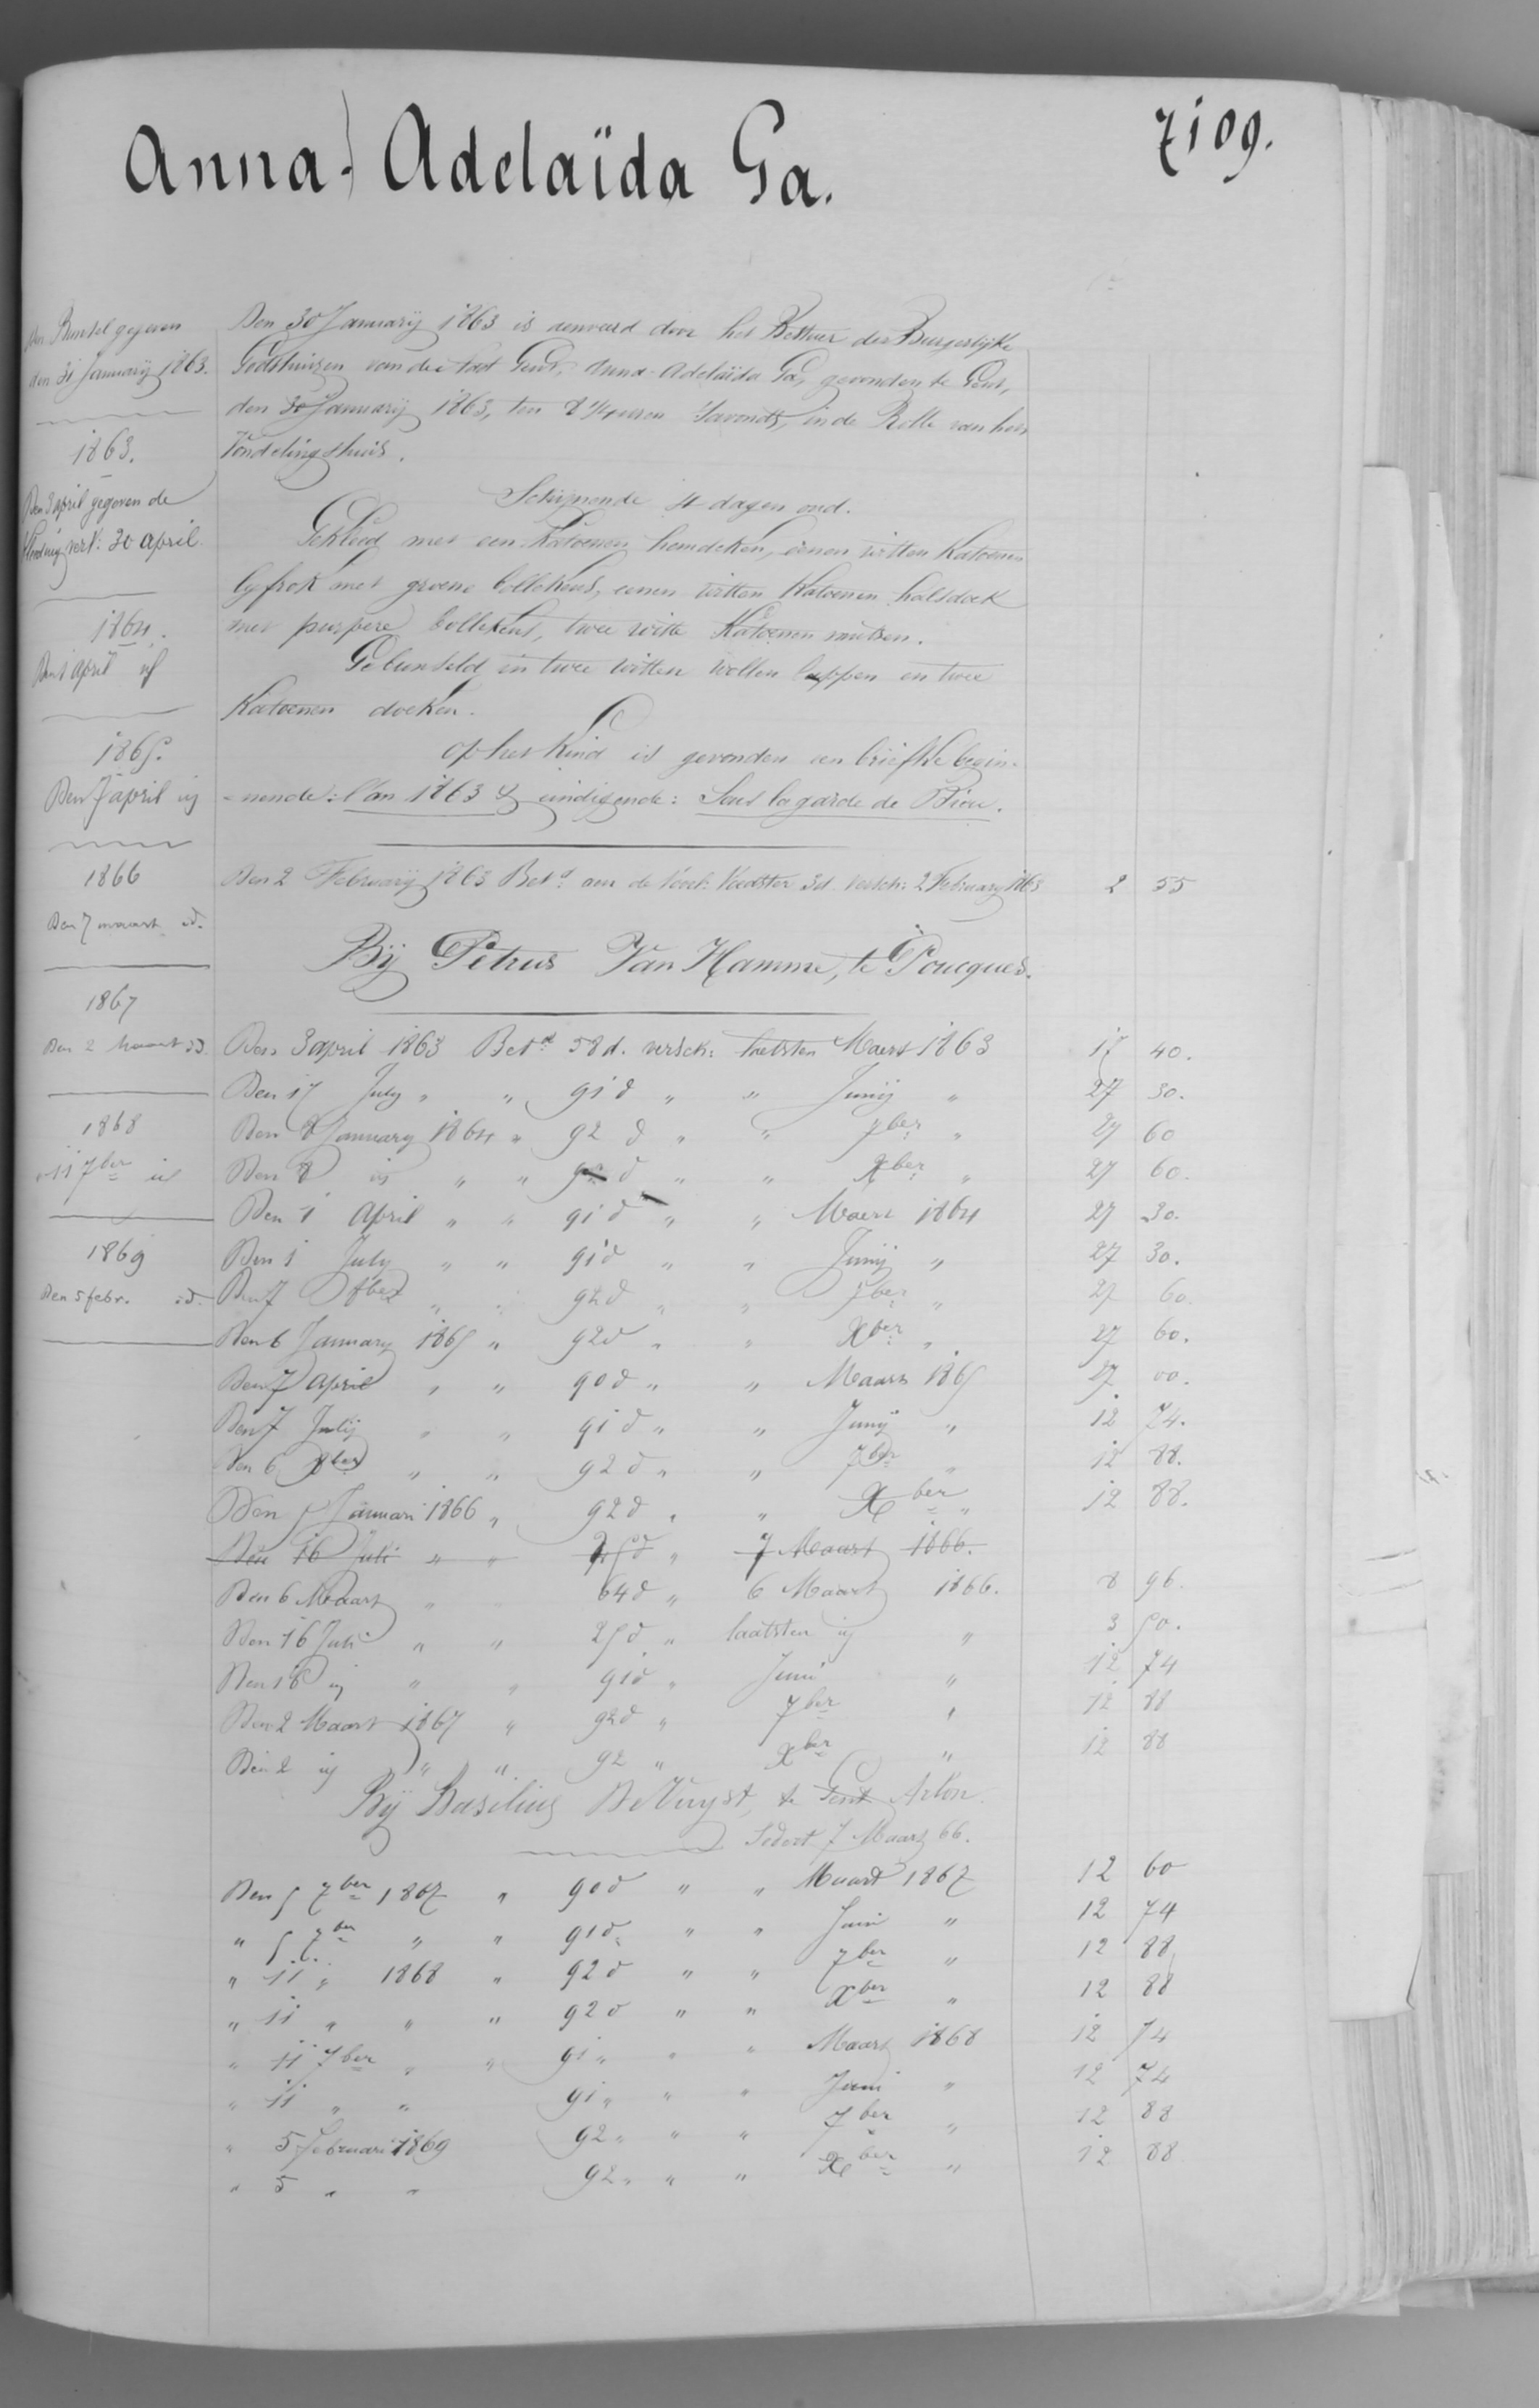 7109.
Anna-Adelaïda Ga.
Den Buntel gegeven
den 31 Januarij 1863.
1863.
Den 3 april gegeven de
kleeding vert: 30 april
1864.
Den 1 april id
1865.
Den 7 april id
1866
Den 7 maart id.
1867
Den 2 Maart id
1868
11 7ber id
1869
Den 5 febr. id.
Den 30 Januarij 1863 is aenveerd door het Bestuer der Burgerlijke
Godshuizen van de stad Gent, Anna-Adelaïda Ga, gevonden te Gent,
den 30 Januarij 1863, ten 8 1/4 uren 's avonds, in de Rolle van het
Vondelingshuis.
Schijnende 4 dagen oud.
Gekleed met een katoenen hemdeken, eenen witten katoenen
lyfrok met groene bollekens, eenen witten katoenen halsdoek
met purpere bollekens, twee witte katoenen mutsen.
Gebunseld in twee witten wollen lappen en twee
katoenen doeken.
Op het kind is gevonden een briefke begin-
-nende: l'an 1863 & eindigende: Sous la garde de Dieu.
Den 2 Februarij 1863 Betd aen de Voed: Voedster 3d versch: 2 February 1863 2 55
Bij Petrus Van Hamme, te Poucques.
Den 3 april 1863 Betd 58 d. versch: laetsten Maert 1863 17 40.
Den 17 July " " 91 d " " Junij " 27 30.
Den 8 January 1864 " 92 d " " 7ber " 27 60
Den 8 id " " 92 d " " Xber " 27 60.
Den 1 April " " 91 d " " Maert 1864 27 30.
Den 1 July " " 91 d " " Junij " 27 30.
Den 7 8ber " " 92 d " " 7ber " 27 60.
Den 6 January 1865 " 92 d " " Xber " 27 60.
Den 7 April " " 90 d " " Maart 1865 27 00.
Den 7 Julij " " 91 d " " Junij " 12 74.
Den 6 8ber " " 92 d " " 7ber " 12 88.
Den 5 Januari 1866 " 92 d " " Xber " 12 88.
Den 16 Juli " " 25 d " 7 Maart 1866.
Den 6 Maart " " 64 d " 6 Maart 1866. 8 96.
Den 16 Juli " " 25 d " laatsten id " 3 50.
Den 18 id " " 91 d " Juni " 12 74
Den 2 Maart 1867 " 92 d " 7ber " 12 88
Den 2 id " " 92 " Xber " 12 88
Bij Basilius De Vuyst, te Gent Aelter.
Sedert 7 Maart 66.
Den 5 7ber 1867 " 90 d " " Maart 1867 12 60
" 5 7ber " " 91 d " " Juni " 12 74
" 11 " 1868 " 92 d " " 7ber " 12 88
" 11 " " " 92 d " " Xber " 12 88
" 11 7ber " " 91 " " " Maart 1868 12 74
" 11 " " 91 " " " Juni " 12 74
" 5 Februari 1869 92 " " " 7ber " 12 88
" 5 " " 92 " " " Xber " 12 88